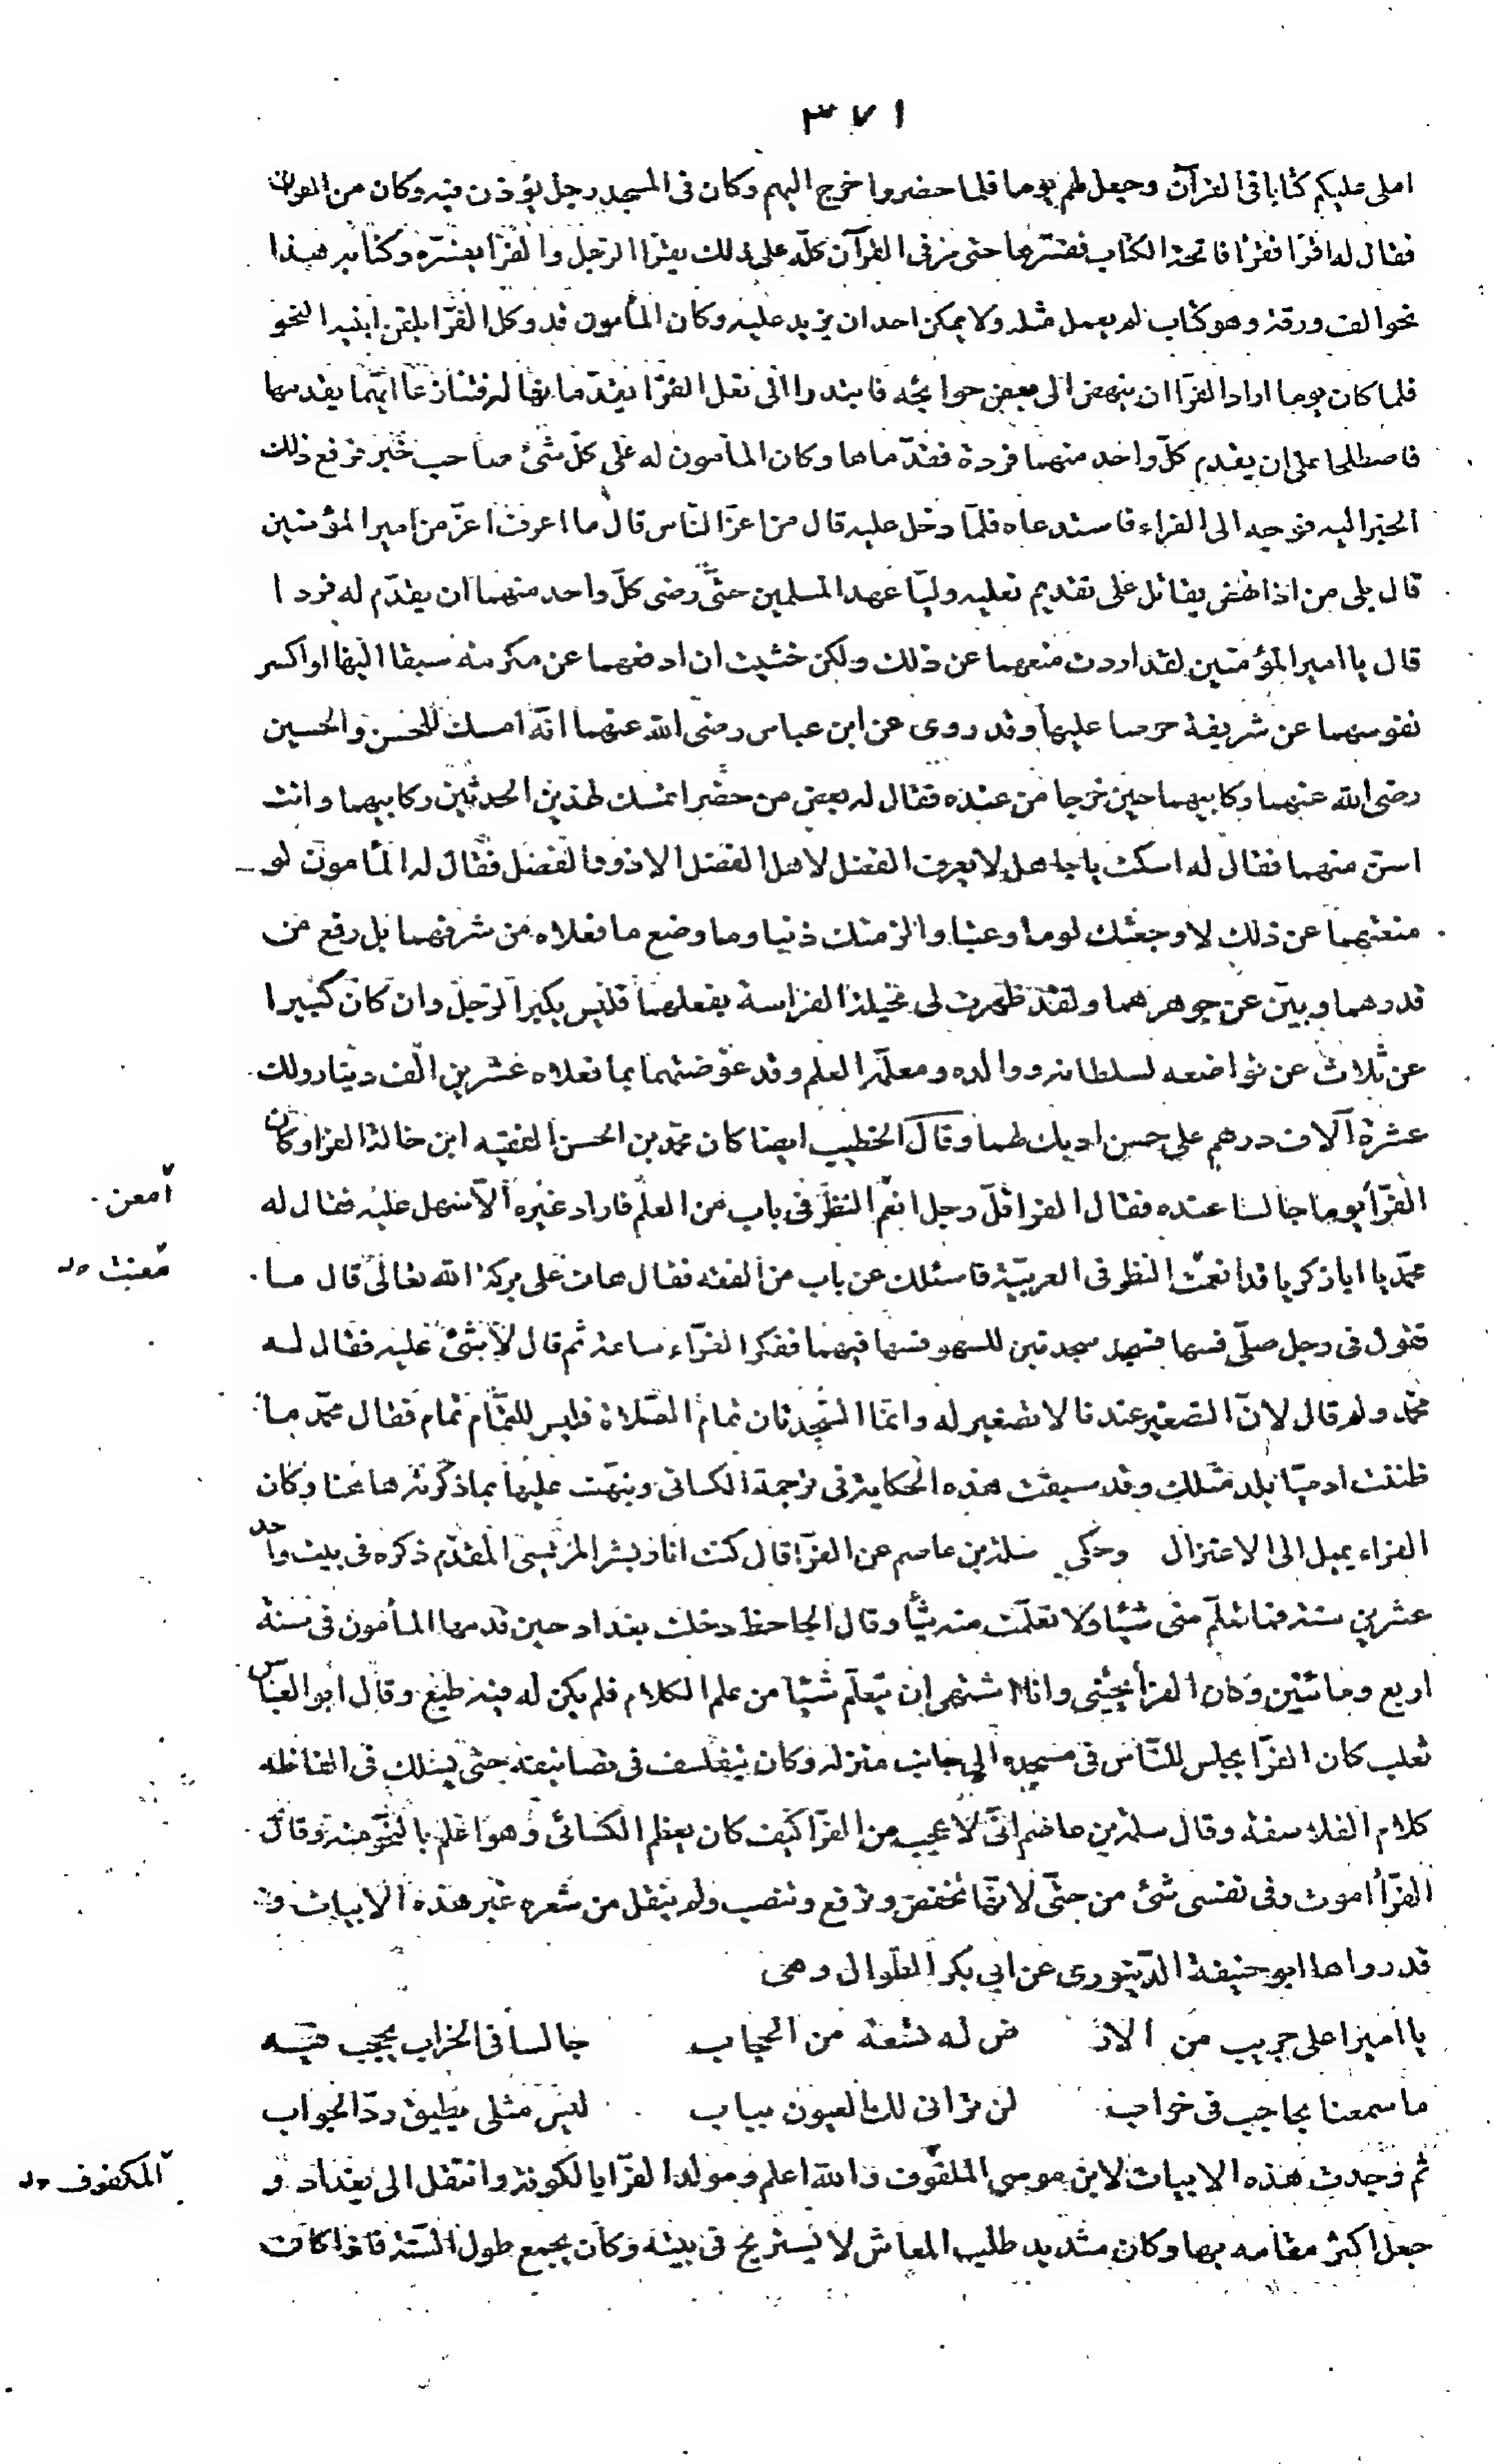 ٣٧١
املى عليكم كتابا فى القرآن وجعل لهم يوما فلما حضروا خرج اليهم وكان فى المسجد رجل يؤذن فيه وكان من القراء
فقال له اقرأ فقرأ فاتحة الكتاب ففسرها حتى مرّ فى القرآن كلّه على ذلك يقرأ الرجل والفرّا يفسّره وكتابه هذا
نحو الف ورقة وهو كتاب لم يعمل مثله ولا يمكن احد ان يزيد عليه وكان المأمون قد وكل الفرّا يلقن ابنيه النحو
فلما كان يوما اراد الفرّا ان ينهض الى بعض حوائجه فابتدرا الى نعل الفرّا يقدّمانها له فتنازعا ايّهما يقدمها
فاصطلحا على ان يقدم كلّ واحد منهما فردة فقدّماها وكان المأمون له على كلّ شئ صاحب خبر فرفع ذلك
الخبر اليه فوجه الى الفراء فاستدعاه فلمّا دخل عليه قال من اعزّ النّاس قال ما اعرف اعزّ من امير المؤمنين
قال بلى من اذا نهض يقاتل على تقديم نعليه وليّا عهد المسلمين حتّى رضى كلّ واحد منهما ان يقدّم له فردا
قال يا امير المؤمنين لقد اردت منعهما عن ذلك ولكن خشيت ان ادفعهما عن مكرمة سبقا اليها او اكسر
نفوسهما عن شريفة حرصا عليها وقد روى عن ابن عباس رضى الله عنهما انّه امسك للحسن والحسين
رضى الله عنهما ركابيهما حين خرجا من عنده فقال له بعض من حضر اتمسك لهذين الحدثين ركابيهما وانت
اسنّ منهما فقال له اسكت يا جاهل لا يعرف الفضل لاهل الفضل الا ذووا لفضل فقال له المأمون لو
منعتهما عن ذلك لاوجعتك لوما وعتبا والزمتك ذنبا وما وضع ما فعلاه من شرفهما بل رفع من
قدرهما وبيّن عن جوهرهما ولقد ظهرت لى مخيلة الفراسة بفعلهما فليس يكبر الرّجل وان كان كبيرا
عن ثلاث عن تواضعه لسلطانه ووالده ومعلّمه العلم وقد عوّضتهما بما فعلاه عشرين الف دينار ولك
عشرة آلاف درهم على حسن ادبك لهما وقال الخطيب ايضا كان محمّد بن الحسن الفقيه ابن خالة الفرا وكان
الفرّا يوما جالسا عنده فقال الفرا قلّ رجل انعم النظر فى باب من العلم فاراد غيره الّا سهل عليه فقال له
محمّد يا ابا زكريا قد انعمت النظر فى العربيّة فاسئلك عن باب من الفقه فقال هات على بركة الله تعالى قال ما
تقول فى رجل صلّى فسها فسجد سجدتين للسهو فسها فيهما ففكر الفرّاء ساعة ثم قال لا شئ عليه فقال له
محمّد ولم قال لانّ التصغير عندنا لا تصغير له وانما السّجدتان تمام الصّلاة فليس للتّمام تمام فقال محمّد ما
ظننت ادميّا يلد مثلك وقد سبقت هذه الحكاية فى ترجمة الكسائى ونبّهت عليها بما ذكرته هاهنا وكان
الفراء يميل الى الاعتزال وحكى سلمة بن عاصم عن الفرّا قال كنت انا وبشر المريسى المقدّم ذكره فى بيت واحد
عشرين سنة فما تعلّم منى شيئا ولا تعلّمت منه شيئا وقال الجاحظ دخلت بغداد حين قدمها المأمون فى سنة
اربع ومائتين وكان الفرّا يجيئنى وانا اشتهى ان يتعلّم شيئا من علم الكلام فلم يكن له فيه طبع وقال ابو العبّاس
ثعلب كان الفرّا يجلس للنّاس فى مسجده الى جانب منزله وكان يتفلسف فى تصانيفه حتى يسلك فى الفاظه
كلام الفلاسفة وقال سلمة بن عاصم انّى لا عجب من الفرّا كيف كان يعظم الكسائى وهو اعلم بالنحو منه وقال
الفرّا اموت وفى نفسى شئ من حتّى لانّها تخفض وترفع وتنصب ولم ينقل من شعره غير هذه الابيات و
قد رواها ابو حنيفة الدّينورى عن ابى بكر الطوال وهى
يا اميرا على جريب من الار ض له تسعة من الحجاب جالسا فى الخراب يحجب فيه
ما سمعنا بحاجب فى خراب لن ترانى لك العيون بباب ليس مثلى يطيق ردّ الجواب
ثم وجدت هذه الابيات لابن موسى الملقوف والله اعلم ومولد الفرّا بالكوفة وانتقل الى بغداد و
جعل اكثر مقامه بها وكان شديد طلب المعاش لا يستريح فى بيته وكان يجمع طول السّنة فاذا كان
امعن
معنت
المكفوف